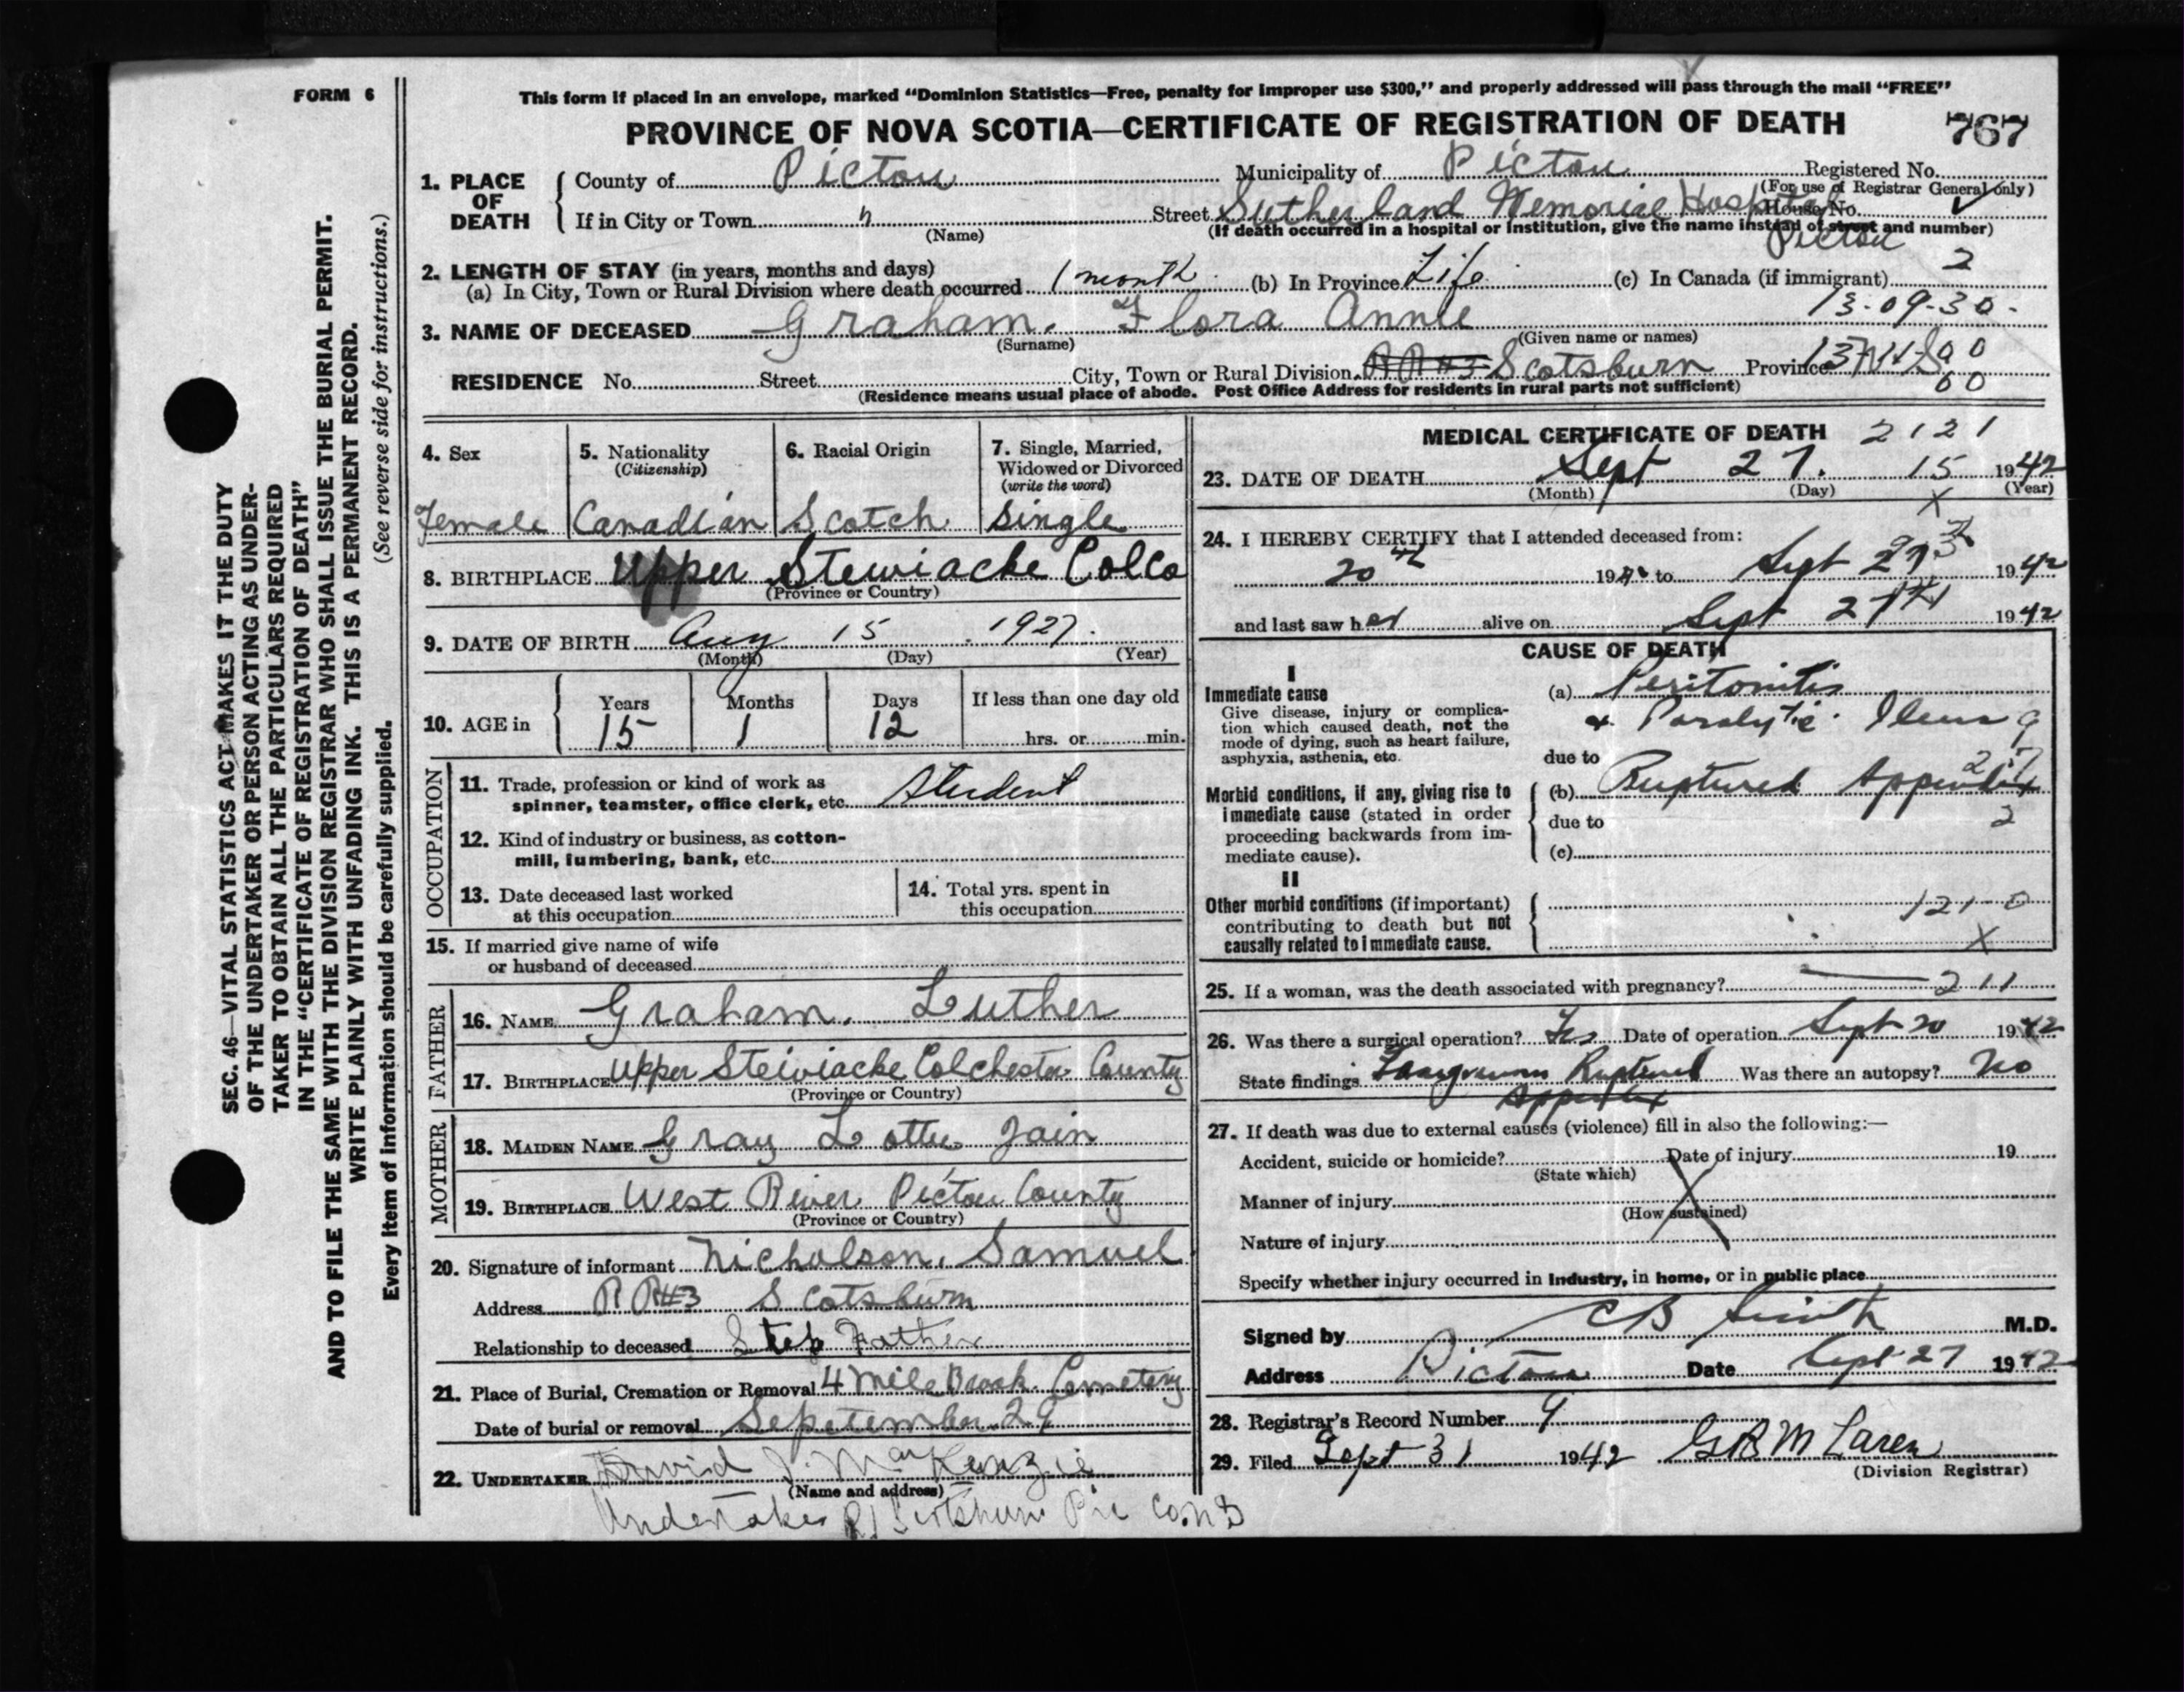 FORM 6
This form if placed in an envelope, marked “Dominion Statistics—Free, penalty for improper use $300,” and properly addressed will pass through the mail “FREE”
PROVINCE OF NOVA SCOTIA—CERTIFICATE OF REGISTRATION OF DEATH 767
1. PLACE OF DEATH { County of Pictou Municipality of Pictou Registered No.
(For use of Registrar General only)
If in City or Town " Street Sutherland Memorial Hospital House No.
(Name) (If death occurred in a hospital or institution, give the name instead of street and number)
Pictou
2. LENGTH OF STAY (in years, months and days) 2
(a) In City, Town or Rural Division where death occurred 1 month (b) In Province Life (c) In Canada (if immigrant)
13-09-30-
3. NAME OF DECEASED Graham. Flora Annie
(Surname) (Given name or names)
RESIDENCE No. Street City, Town or Rural Division RR#3 Scotsburn Province
00
(Residence means usual place of abode. Post Office Address for residents in rural parts not sufficient)
4. Sex 5. Nationality (Citizenship) 6. Racial Origin 7. Single, Married, Widowed or Divorced (write the word)
Female Canadian Scotch Single
8. BIRTHPLACE Upper Stewiacke Colco
(Province or Country)
9. DATE OF BIRTH Aug 15 . 1927.
(Month) (Day) (Year)
10. AGE in { Years Months Days If less than one day old
15 1 12 hrs. or min.
OCCUPATION
11. Trade, profession or kind of work as
spinner, teamster, office clerk, etc. Student
12. Kind of industry or business, as cotton-
mill, lumbering, bank, etc.
13. Date deceased last worked
at this occupation
14. Total yrs. spent in
this occupation
15. If married give name of wife
or husband of deceased
FATHER
16. NAME Graham. Luther
17. BIRTHPLACE Upper Steiviacke Colchester County
(Province or Country)
MOTHER
18. MAIDEN NAME Gray Lottie Jain
19. BIRTHPLACE West River Pictou County
(Province or Country)
20. Signature of informant Nicholson, Samuel
Address RR#3 Scotsburn
Relationship to deceased Step Father
21. Place of Burial, Cremation or Removal 4 Mile Brook Cemetery
Date of burial or removal Sepetember 29
22. UNDERTAKER David J. MacKenzie
(Name and address)
Undertaker R1 Scotsburn Pic Co. NS
MEDICAL CERTIFICATE OF DEATH 2121
23. DATE OF DEATH Sept 27. 15 1942
(Month) (Day) (Year)
X
24. I HEREBY CERTIFY that I attended deceased from:
20th 194 to Sept 27 1942
and last saw her alive on Sept 27th 1942
CAUSE OF DEATH
I
Immediate cause (a) Peritonitis
Give disease, injury or complica-
tion which caused death, not the
mode of dying, such as heart failure,
asphyxia, asthenia, etc.
& Paralytic Ileus 9
due to
27
Morbid conditions, if any, giving rise to
immediate cause (stated in order
proceeding backwards from im-
mediate cause).
(b) Ruptured Appendix
due to 2
(c)
II
Other morbid conditions (if important)
contributing to death but not
causally related to immediate cause.
121-0
X
25. If a woman, was the death associated with pregnancy? 211
26. Was there a surgical operation? Yes Date of operation Sept 20 1942
State findings Ruptured Appendix Was there an autopsy? No
27. If death was due to external causes (violence) fill in also the following:—
Accident, suicide or homicide? Date of injury 19
(State which)
Manner of injury
(How sustained)
X
Nature of injury
Specify whether injury occurred in industry, in home, or in public place
Signed by CB Smith M.D.
Address Pictou Date Sept 27 1942
28. Registrar's Record Number 9
29. Filed Sept 31 1942 G R M Laren
(Division Registrar)
SEC. 46—VITAL STATISTICS ACT MAKES IT THE DUTY
OF THE UNDERTAKER OR PERSON ACTING AS UNDER-
TAKER TO OBTAIN ALL THE PARTICULARS REQUIRED
IN THE “CERTIFICATE OF REGISTRATION OF DEATH”
AND TO FILE THE SAME WITH THE DIVISION REGISTRAR WHO SHALL ISSUE THE BURIAL PERMIT.
WRITE PLAINLY WITH UNFADING INK. THIS IS A PERMANENT RECORD.
(See reverse side for instructions.)
Every item of information should be carefully supplied.